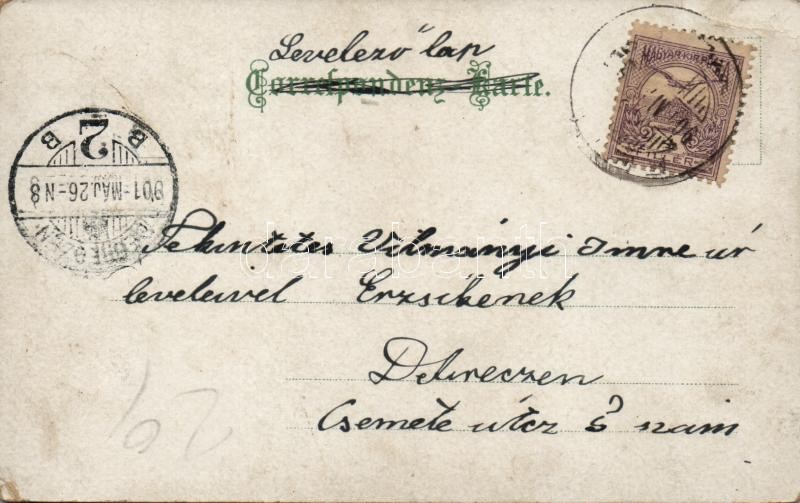 Levelező lap
Correspondenz-Karte.
MAGYAR KIR. POSTA
2
B B
901-MÁJ.26.-N8
DEBRECZEN
darabanth
Tekintetes Vilmányi Imre úr
leveleivel Erzsikenek
Debreczen
Csemete útcz szám